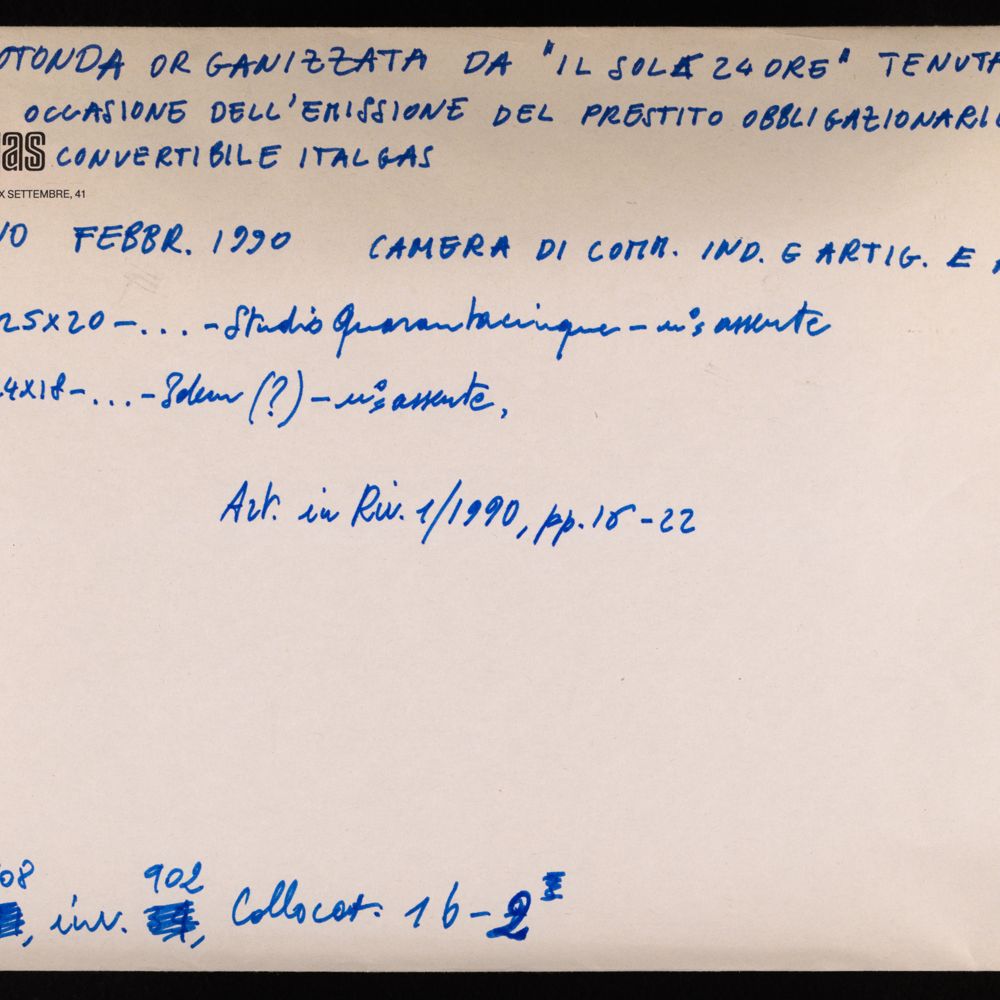 OTONDA ORGANIZZATA DA "IL SOLE 24 ORE" TENUTA
OCCASIONE DELL'EMISSIONE DEL PRESTITO OBBLIGAZIONARIO
as CONVERTIBILE ITALGAS
X SETTEMBRE, 41
NO FEBBR. 1990 CAMERA DI COMM. IND. E ARTIG. E
25x20 - ... - Studio Quarantacinque - n° assente
4x18 - ... - Idem (?) - n° assente,
Art. in Riv. 1/1990, pp. 16-22
08 902
, inv. , Collocat. 16-2